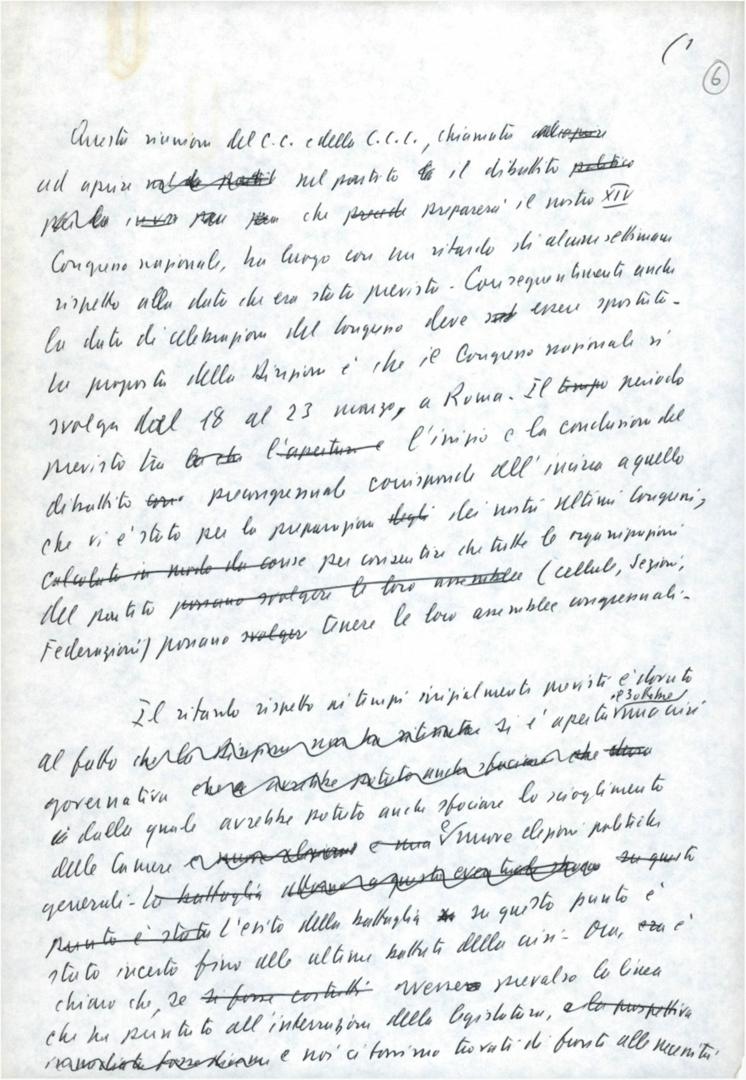 (1
6
Questa riunione del C.C. e della C.C.C., chiamata
ad aprire nel partito il dibattito politico
per la che prende preparerà il nostro XIV
Congresso nazionale, ha luogo con un ritardo di alcune settimane
rispetto alla data che era stata prevista - Conseguentemente anche
la data di celebrazione del Congresso deve essere spostata -
La proposta della Direzione è che il Congresso nazionale si
svolga dal 18 al 23 marzo, a Roma - Il tempo periodo
previsto tra l'apertura e l'inizio e la conclusione del
dibattito precongressuale corrisponde all'incirca a quello
che vi è stato per la preparazione degli dei nostri ultimi Congressi,
calcolato in modo da per consentire che tutte le organizzazioni
del partito possano svolgere le loro assemblee (cellule, Sezioni,
Federazioni) possano svolger tenere le loro assemblee congressuali -
Il ritardo rispetto ai tempi inizialmente previsti è dovuto
al fatto che la Direzione non ha si è aperta il 3 ottobre una crisi
governativa che avrebbe potuto anche sfociare
dalla quale avrebbe potuto anche sfociare lo scioglimento
delle Camere e nuove elezioni e nuove elezioni politiche
generali - La battaglia su questo
punto è stata l'esito della battaglia su questo punto è
stato incerto fino alle ultime battute della crisi - Ora, è
chiaro che, se si fosse avesse prevalso la linea
che ha puntato all'interruzione della legislatura, e la prospettiva
e noi ci fossimo trovati di fronte alla necessità